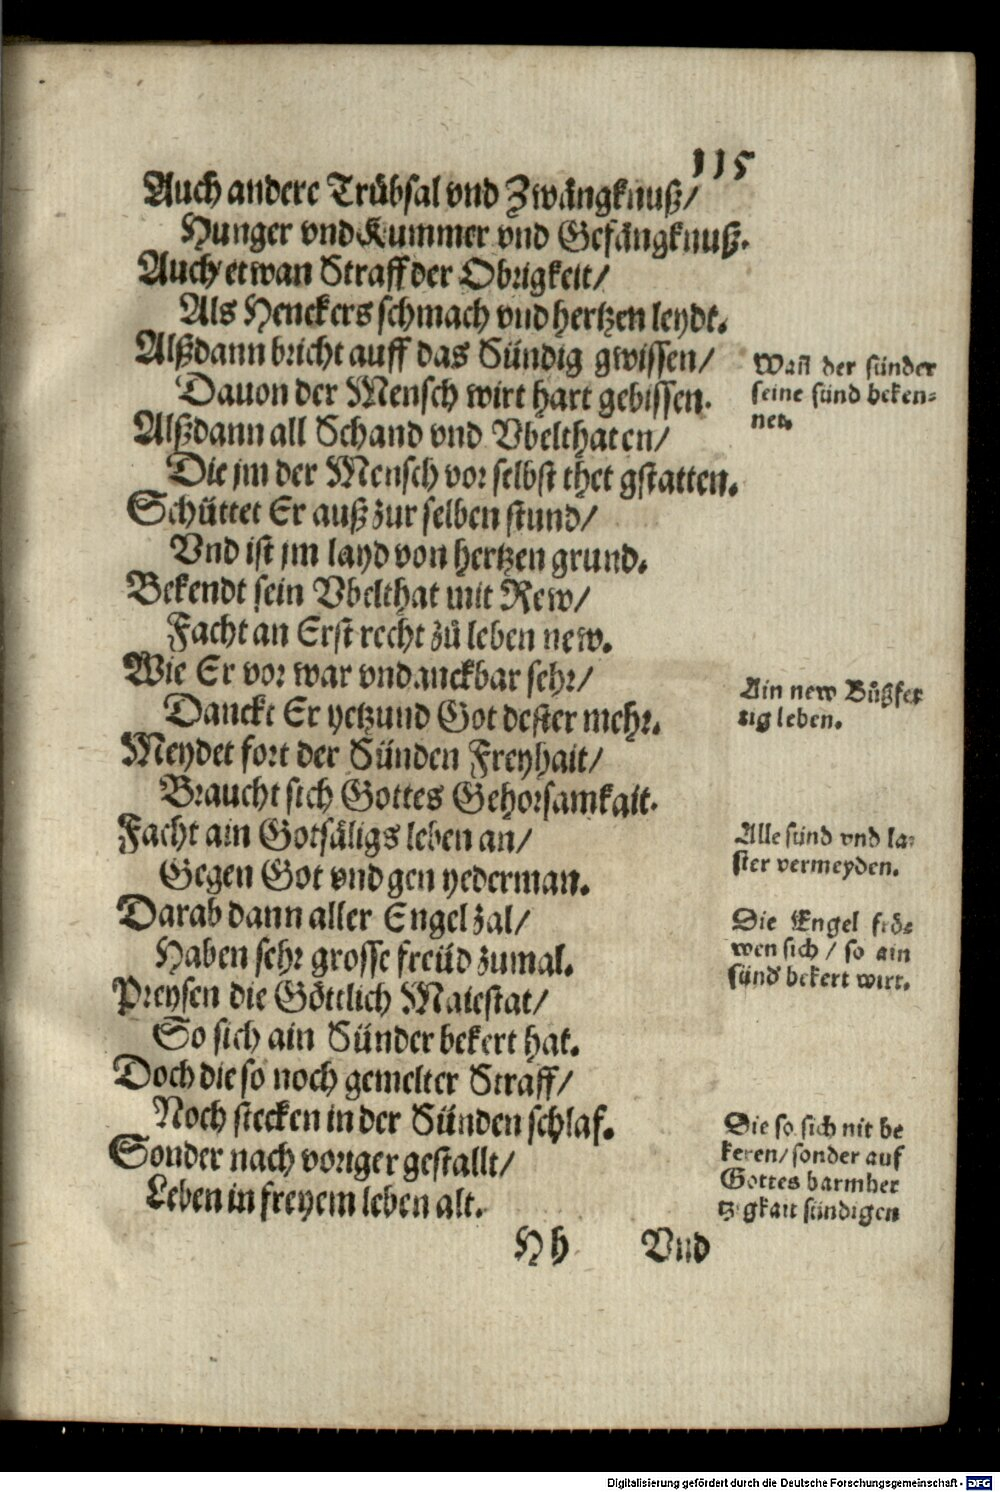 115
Auch andere Trübsal vnd Zwängknuß/
Hunger vnd Kummer vnd Gefängknuß.
Auch etwan Straff der Obrigkeit/
Als Henckers schmach vnd hertzen leydt.
Alßdann bricht auff das Sündig gwissen/
Dauon der Mensch wirt hart gebissen.
Alßdann all Schand vnd Vbelthaten/
Die jm der Mensch vor selbst thet gstatten.
Schüttet Er auß zur selben stund/
Vnd ist jm layd von hertzen grund.
Bekendt sein Vbelthat mit Rew/
Facht an Erst recht zů leben new.
Wie Er vor war vndanckbar sehr/
Danckt Er yetzund Got dester mehr.
Meydet fort der Sünden Freyhait/
Braucht sich Gottes Gehorsamkait.
Facht ain Gotsäligs leben an/
Gegen Got vnd gen yederman.
Darab dann aller Engel zal/
Haben sehr grosse freüd zumal.
Preysen die Göttlich Maiestat/
So sich ain Sünder bekert hat.
Doch die so noch gemelter Straff/
Noch stecken in der Sünden schlaf.
Sonder nach voriger gestallt/
Leben in freyem leben alt.
Hh Vnd
Wañ der sünder
seine sünd beken-
net.
Ain new Bůßfer
tig leben.
Alle sünd vnd la-
ster vermeyden.
Die Engel frö-
wen sich / so ain
sünd bekert wirt.
Die so sich nit be
keren/ sonder auf
Gottes barmher
tzigkait sündigen
Digitalisierung gefördert durch die Deutsche Forschungsgemeinschaft - DFG